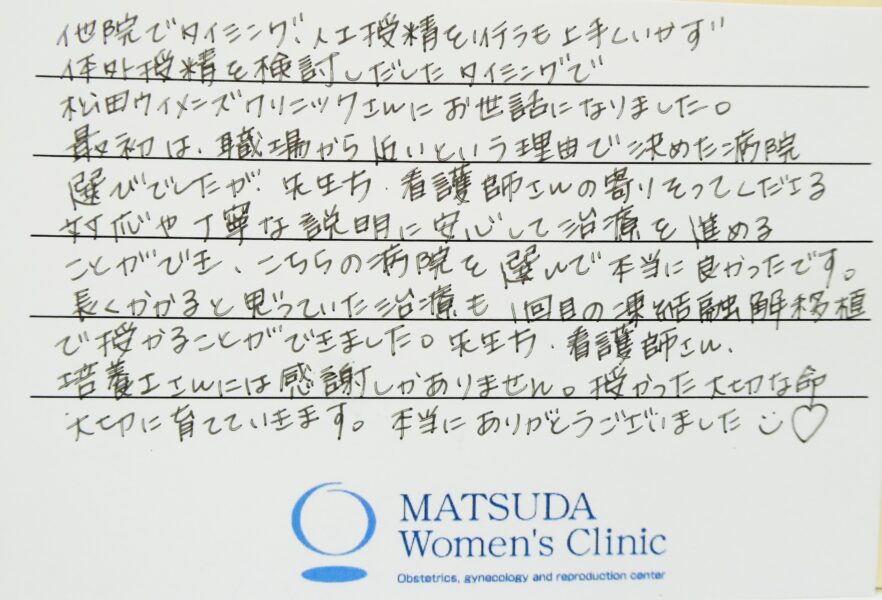 他院でタイミング、人工授精を行うも上手くいかず
体外授精を検討しだしたタイミングで
松田ウィメンズクリニックさんにお世話になりました。
最初は、職場から近いという理由で決めた病院
選びでしたが、先生方、看護師さんの寄りそってくださる
対応や丁寧な説明に安心して治療を進める
ことができ、こちらの病院を選んで本当に良かったです。
長くかかると思っていた治療も1回目の凍結融解移植
で授かることができました。先生方、看護師さん、
培養士さんには感謝しかありません。授かった大切な命
大切に育てていきます。本当にありがとうございました
MATSUDA
Women's Clinic
Obstetrics, gynecology and reproduction center